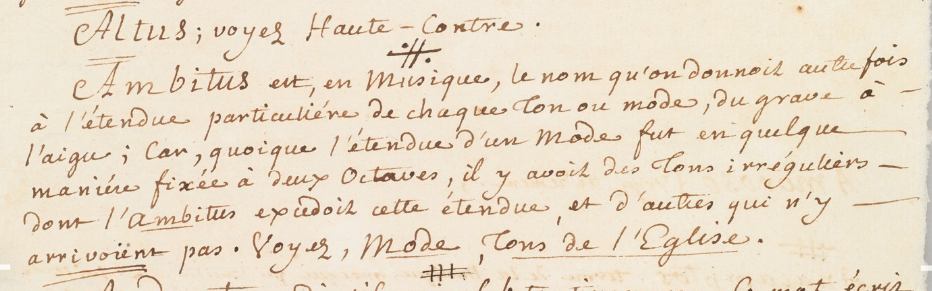 Altus; voyez Haute-Contre.
Ambitus est, en Musique, le nom qu'on donnoit autrefois
à l'étendue particuliére de chaque Ton ou mode, du grave à
l'aigu; Car, quoique l'étendue d'un Mode fut en quelque
maniére fixée à deux Octaves, il y avoit des Tons irréguliers
dont l'ambitus excédoit cette étendue, et d'autres qui n'y
arrivoient pas. Voyez, Mode, Tons de l'Eglise.
mot écrit